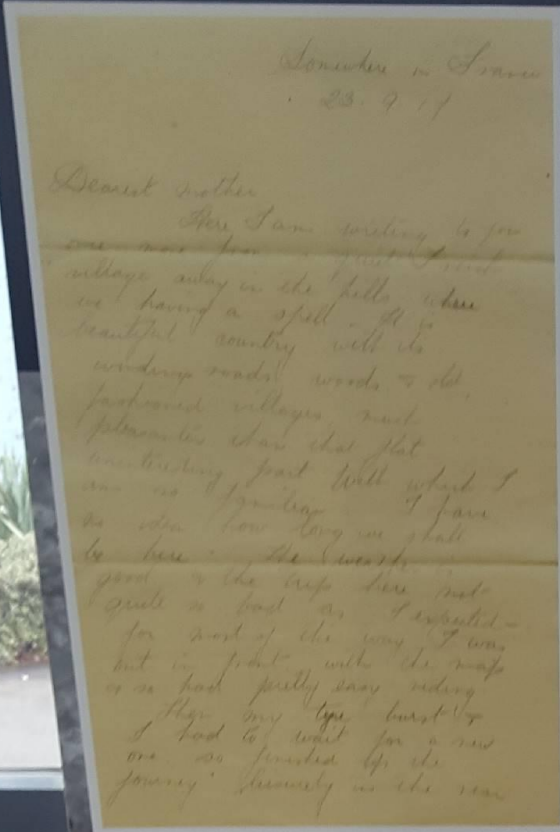 Somewhere in France
23 9 17
Dearest Mother
Here I am writing to you
once more from a quiet French
village away in the hills where
we having a spell. It is
beautiful country with its
winding roads woods & old
fashioned villages, much
pleasanter than that flat
uninteresting part with which I
am so familiar. I have
no idea how long we shall
be here. The weather
good & the trip here not
quite so bad as I expected -
for most of the way I was
out in front with the map
& so had pretty easy riding
Then my tyre burst &
I had to wait for a new
one so finished up the
journey leisurely in the rear